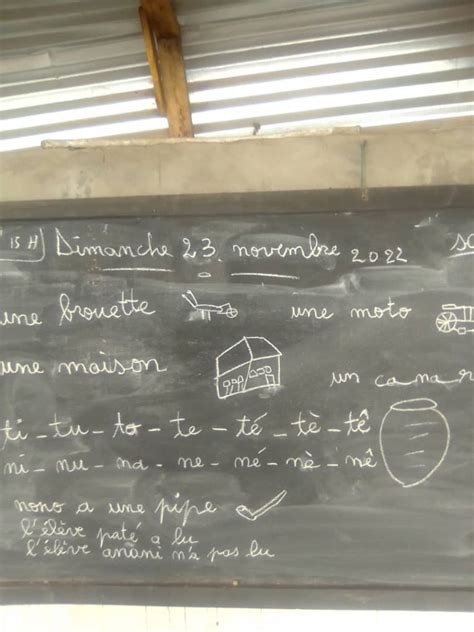 15 H Dimanche 23 novembre 2022
une brouette une moto
une maison un canar
ti - tu - to - te - té - tè - tê
ni - nu - na - ne - né - nè - nê
nono a une pipe
l'élève paté a lu
l'élève anani n'a pas lu